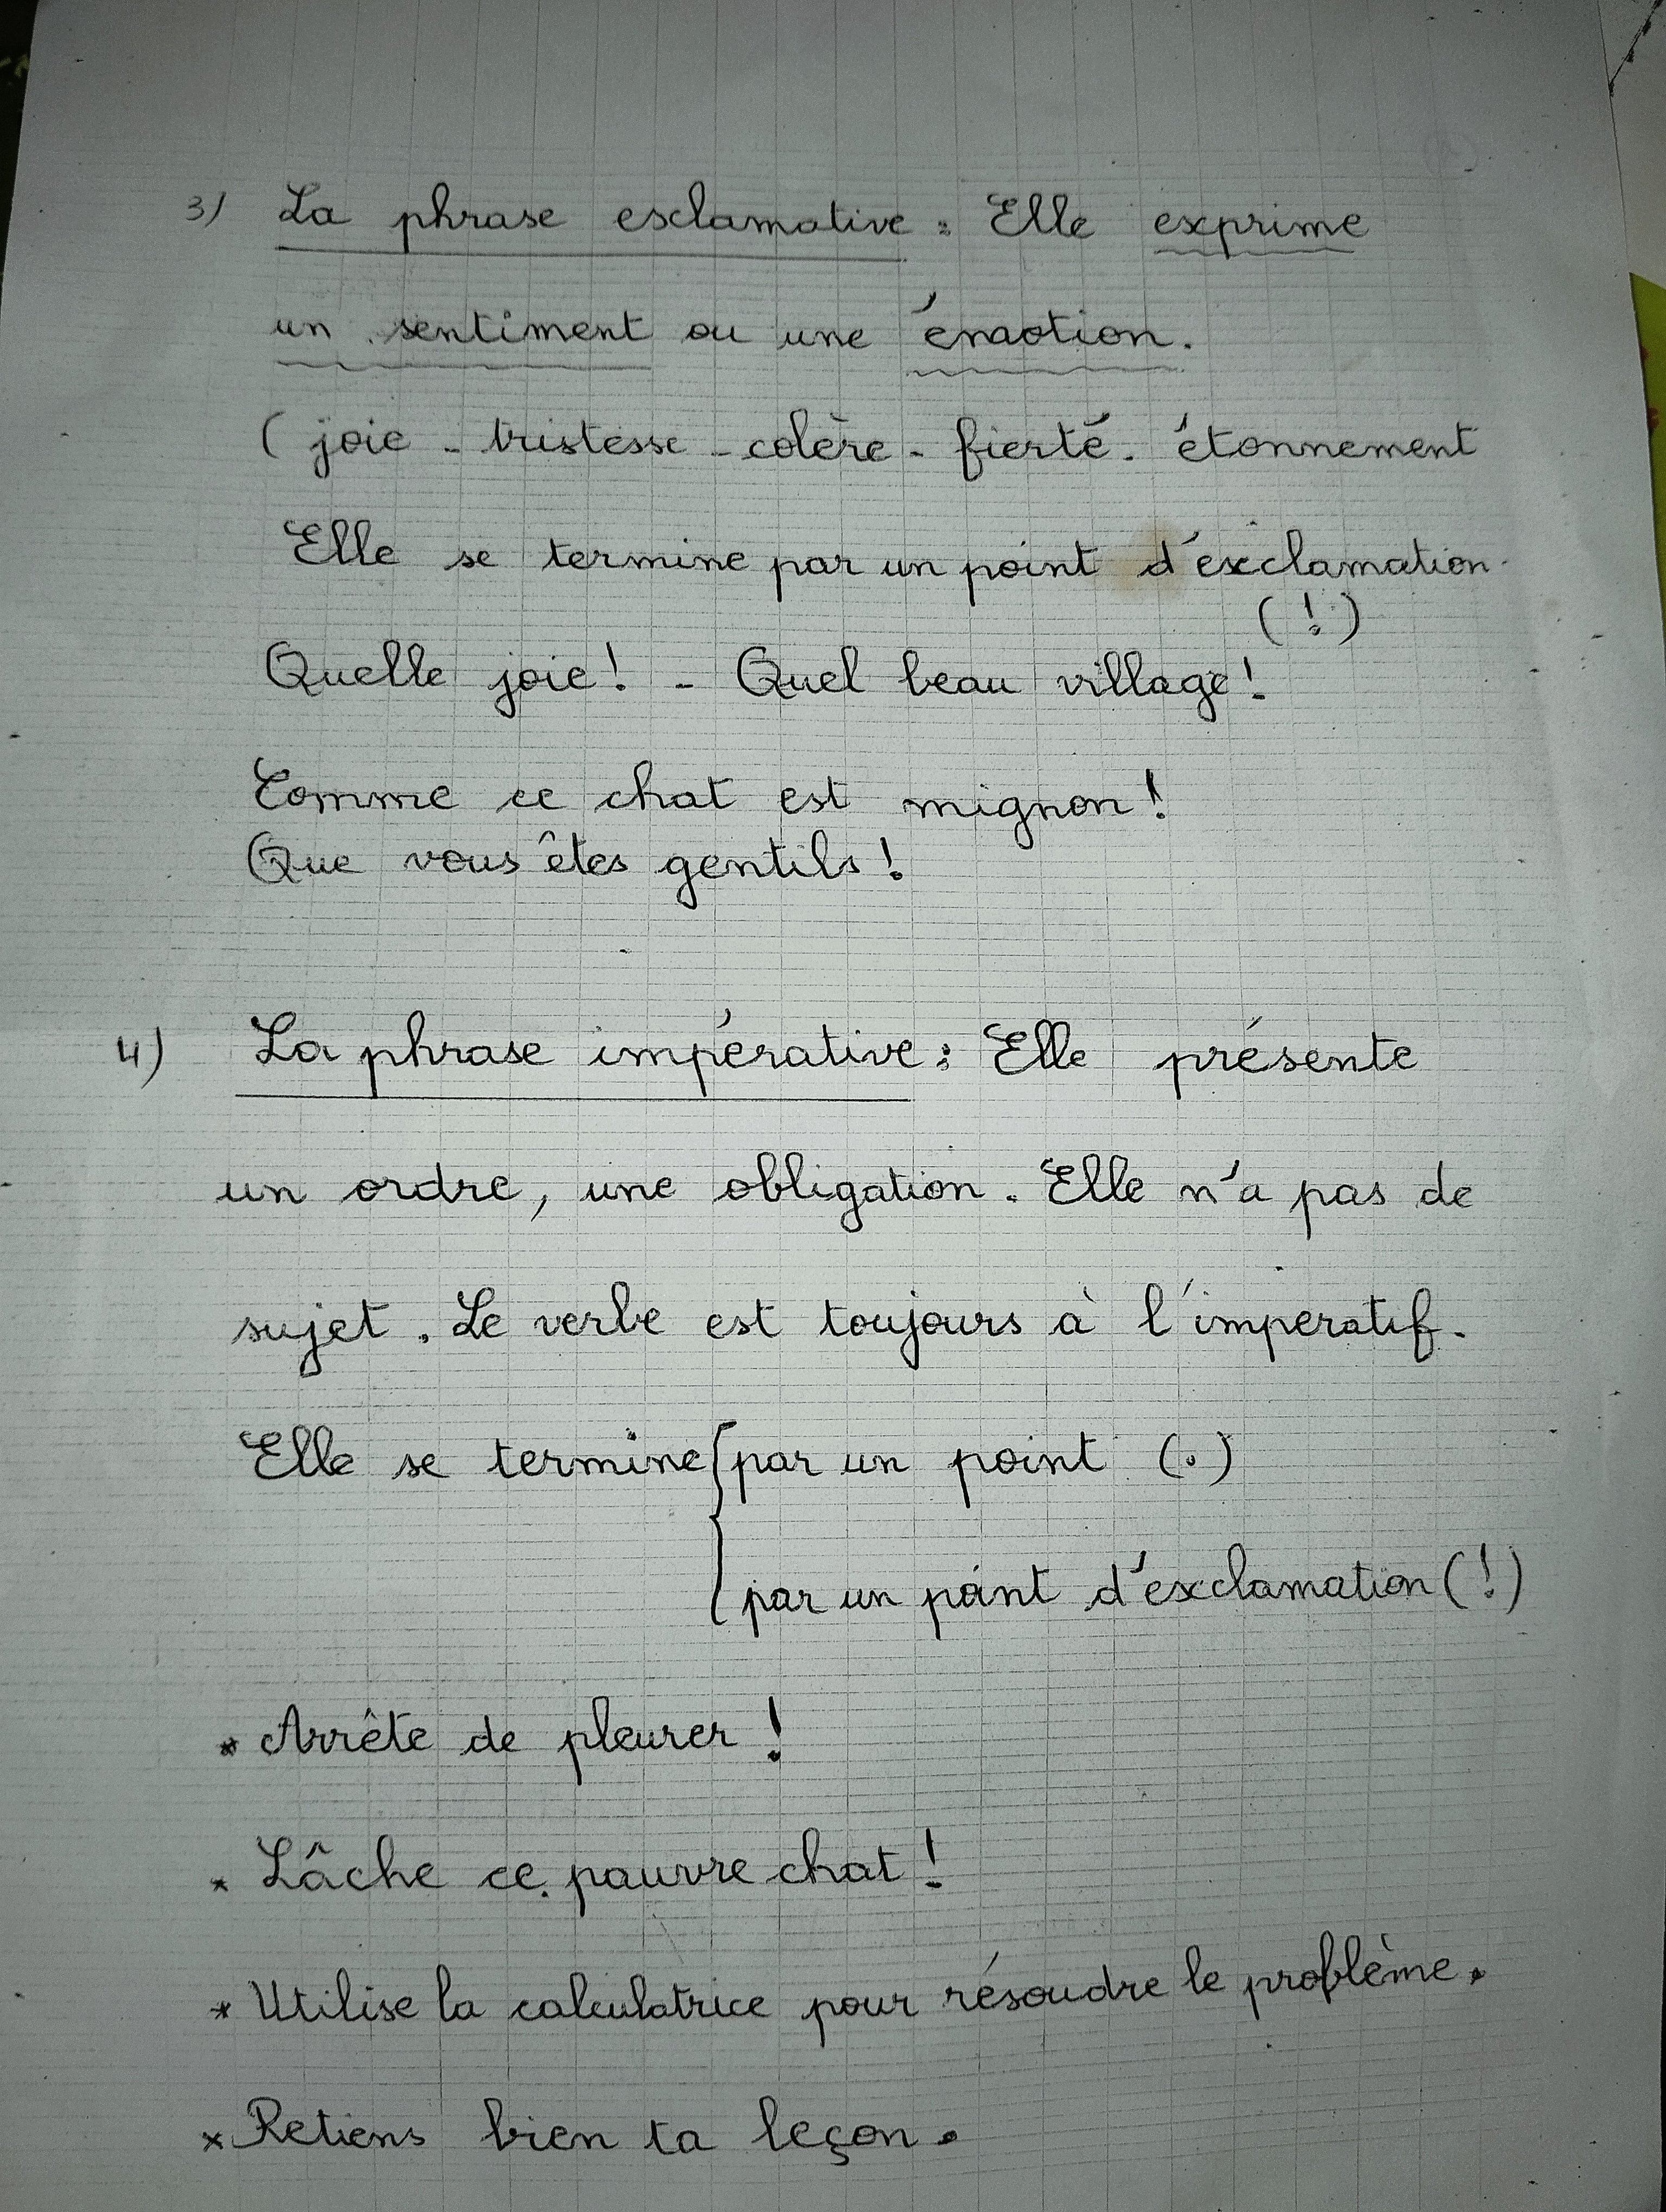 3) La phrase esclamative : Elle exprime
un sentiment ou une émotion.
( joie - tristesse - colère - fierté - étonnement
Elle se termine par un point d'exclamation.
(!)
Quelle joie ! - Quel beau village !
Comme ce chat est mignon !
Que vous êtes gentils !
4) La phrase impérative : Elle présente
un ordre, une obligation. Elle n'a pas de
sujet. Le verbe est toujours à l'imperatif.
Elle se termine { par un point (.)
par un point d'exclamation (!)
* Arrête de pleurer !
* Lâche ce pauvre chat !
* Utilise la calculatrice pour résoudre le problème.
* Retiens bien ta leçon.